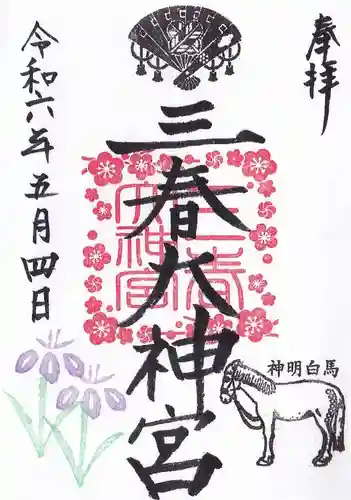 奉拝
三春大神宮
三春
大神宮
神明白馬
令和六年五月四日